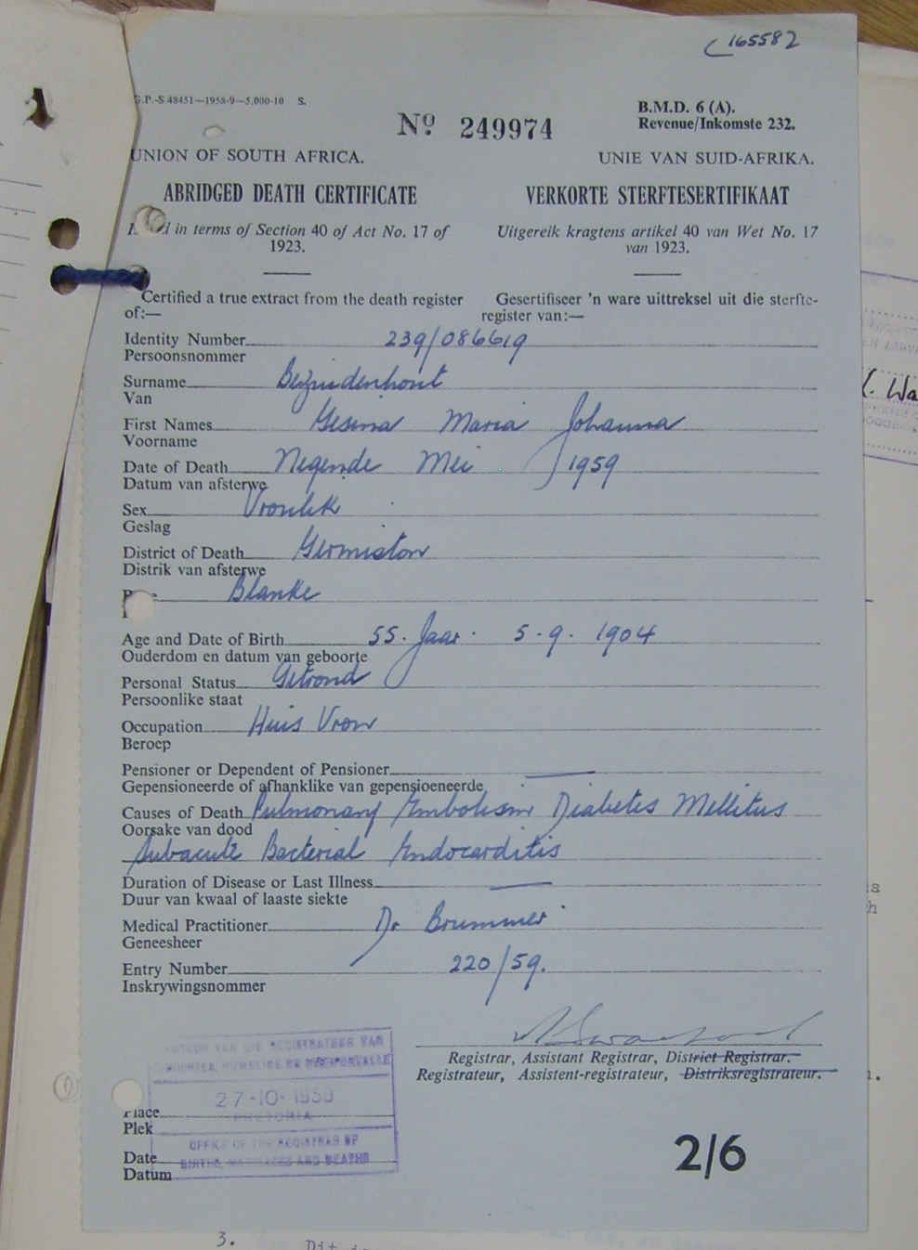 165582
G.P.-S 48451—1958-9—5,000-10 S.
B.M.D. 6 (A).
Revenue/Inkomste 232.
Nº 249974
UNION OF SOUTH AFRICA.
UNIE VAN SUID-AFRIKA.
ABRIDGED DEATH CERTIFICATE
VERKORTE STERFTESERTIFIKAAT
in terms of Section 40 of Act No. 17 of
1923.
Uitgereik kragtens artikel 40 van Wet No. 17
van 1923.
Certified a true extract from the death register
of:—
Gesertifiseer 'n ware uittreksel uit die sterfte-
register van:—
Identity Number 239/086619
Persoonsnommer
Surname Bezuidenhout
Van
First Names Gesina Maria Johanna
Voorname
Date of Death Negende Mei 1959
Datum van afsterwe
Sex Vroulik
Geslag
District of Death Germiston
Distrik van afsterwe
Blanke
Age and Date of Birth 55 Jaar 5.9.1904
Ouderdom en datum van geboorte
Personal Status Getroud
Persoonlike staat
Occupation Huis Vrou
Beroep
Pensioner or Dependent of Pensioner
Gepensioneerde of afhanklike van gepensioeneerde
Causes of Death Pulmonary Embolism Diabetes Mellitus
Oorsake van dood
Subacute Bacterial Endocarditis
Duration of Disease or Last Illness
Duur van kwaal of laaste siekte
Medical Practitioner Dr Brummer
Geneesheer
Entry Number 220/59.
Inskrywingsnommer
Registrar, Assistant Registrar, District Registrar.
Registrateur, Assistent-registrateur, Distriksregistrateur.
PRETORIA
Place
Plek
OFFICE OF THE REGISTRAR OF
BIRTHS, MARRIAGES AND DEATHS
Date
Datum
2/6
3.